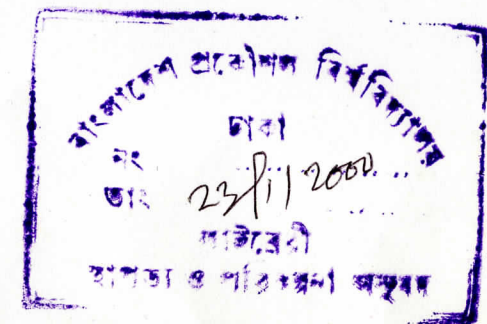 বাংলাদেশ প্রকৌশল বিশ্ববিদ্যালয়
ঢাকা
নং ........
তাং 23/11/2000
লাইব্রেরী
স্থাপত্য ও পরিকল্পনা অনুষদ